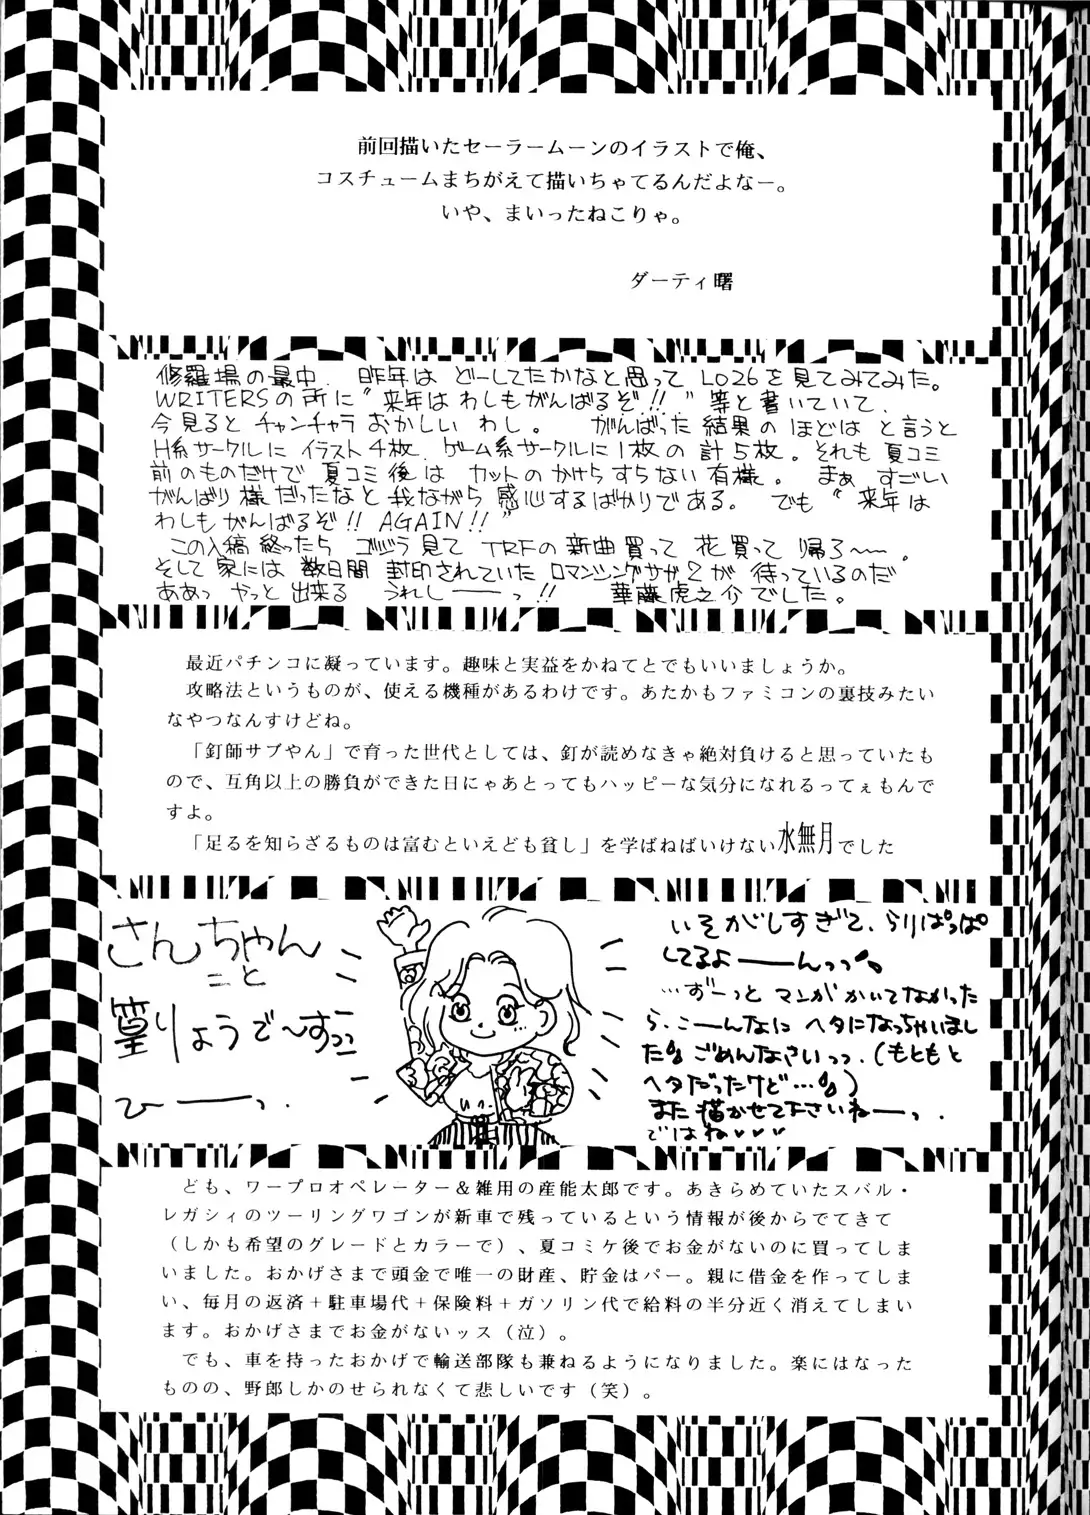 前回描いたセーラームーンのイラストで俺、
コスチュームまちがえて描いちゃてるんだよなー。
いや、まいったねこりゃ。
ダーティ曙
修羅場の最中、昨年はどーしてたかなと思ってLO26を見てみてみた。
WRITERSの所に"来年はわしもがんばるぞ!!"等と書いていて、
今見るとチャンチャラおかしいわし。 がんばった結果のほどはと言うと
H系サークルにイラスト4枚、ゲーム系サークルに1枚の計5枚。それも夏コミ
前のものだけで夏コミ後はカットのかけらすらない有様。 まぁすごい
がんばり様だったなと我ながら感心するばかりである。 でも"来年は
わしもがんばるぞ!! AGAIN!!"
この入稿終ったらゴジラ見てTRFの新曲買って花買って帰ろ〜〜。
そして家には数日間封印されていたロマンシングサガ2が待っているのだ
ああっやっと出来るうれしーーっ!! 華藤虎之介でした。
最近パチンコに凝っています。趣味と実益をかねてとでもいいましょうか。
攻略法というものが、使える機種があるわけです。あたかもファミコンの裏技みたい
なやつなんすけどね。
「釘師サブやん」で育った世代としては、釘が読めなきゃ絶対負けると思っていたも
ので、互角以上の勝負ができた日にゃあとってもハッピーな気分になれるってぇもんで
すよ。
「足るを知らざるものは富むといえども貧し」を学ばねばいけない水無月でした
さんちゃん
こと
篁りょうで〜すっっ
ひーーっ.
いそがしすぎて、らりぱっぱ
してるよーーんっっ
…ずーっとマンガかいてなかった
ら、こーんなにヘタになっちゃいまし
た ごめんなさいっっ.(もともと
ヘタだったけど…)
また描かせて下さいねーーっ.
ではね♥♥♥
ども、ワープロオペレーター＆雑用の産能太郎です。あきらめていたスバル・
レガシィのツーリングワゴンが新車で残っているという情報が後からでてきて
（しかも希望のグレードとカラーで）、夏コミケ後でお金がないのに買ってしま
いました。おかげさまで頭金で唯一の財産、貯金はパー。親に借金を作ってしま
い、毎月の返済＋駐車場代＋保険料＋ガソリン代で給料の半分近く消えてしまい
ます。おかげさまでお金がないッス（泣）。
でも、車を持ったおかげで輸送部隊も兼ねるようになりました。楽にはなった
ものの、野郎しかのせられなくて悲しいです（笑）。